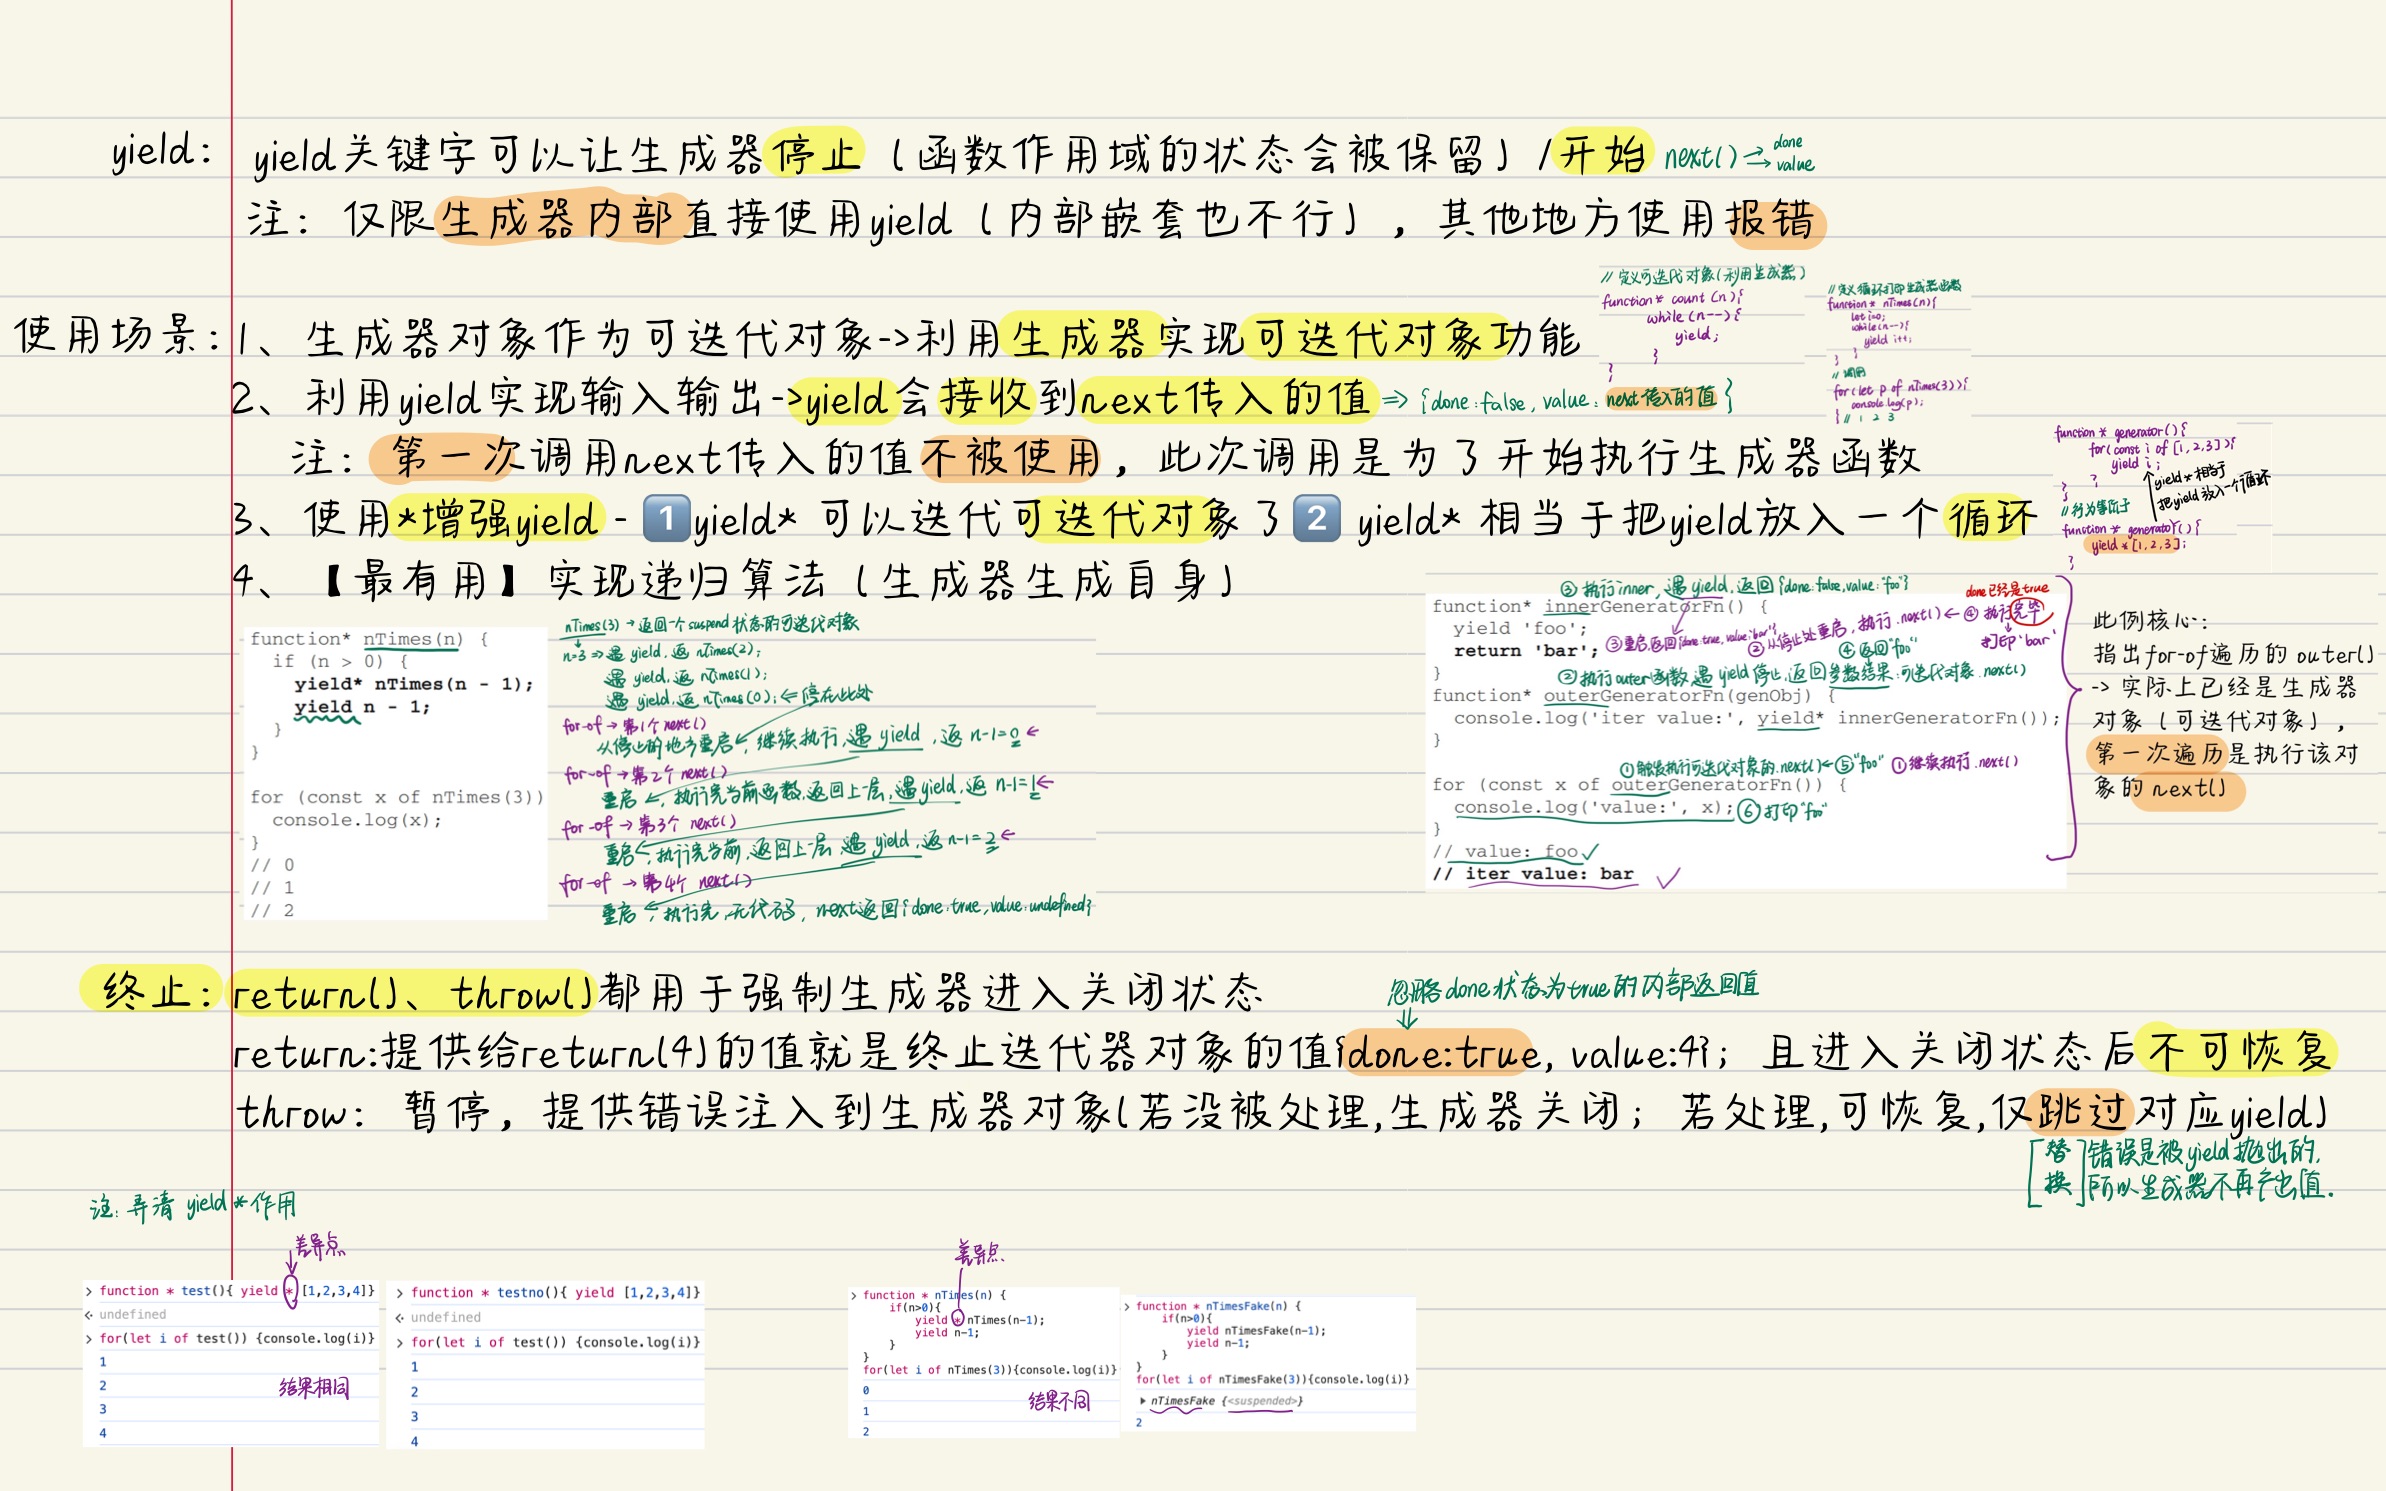 yield： yield关键字可以让生成器停止（函数作用域的状态会被保留）/开始 next() → done → value
注： 仅限生成器内部直接使用yield（内部嵌套也不行），其他地方使用报错
使用场景：1、生成器对象作为可迭代对象->利用生成器实现可迭代对象功能
// 定义可迭代对象(利用生成器)
function* count (n){
while(n--){
yield;
}
}
// 定义循环打印生成器函数
function* nTimes(n){
let i=0;
while(n--){
yield i++;
}
}
// 调用
for(let p of nTimes(3)){
console.log(p);
} // 1 2 3
2、利用yield实现输入输出->yield会接收到next传入的值 => {done:false, value: next传入的值}
注： 第一次调用next传入的值不被使用，此次调用是为了开始执行生成器函数
3、使用*增强yield - 1 yield* 可以迭代可迭代对象了 2 yield* 相当于把yield放入一个循环
function * generator(){
for(const i of [1,2,3]){
yield i;
}
}
yield*相当于
把yield放入一个循环
//行为等价于
function * generator(){
yield *[1,2,3];
}
4、【最有用】实现递归算法（生成器生成自身）
function* nTimes(n) {
if (n > 0) {
yield* nTimes(n - 1);
yield n - 1;
}
}
for (const x of nTimes(3))
console.log(x);
}
// 0
// 1
// 2
nTimes(3) → 返回一个suspend状态的可迭代对象
n=3 => 遇 yield, 返 nTimes(2);
遇 yield, 返 nTimes(1);
遇 yield, 返 nTimes(0); ⇐ 停在此处
for-of → 第1个 next()
从停止的地方重启, 继续执行, 遇 yield, 返 n-1=0 ←
for-of → 第2个 next()
重启 ←, 执行完当前函数, 返回上一层, 遇yield, 返 n-1=1 ←
for-of → 第3个 next()
重启 ←, 执行完当前, 返回上一层, 遇 yield, 返 n-1=2 ←
for-of → 第4个 next()
重启 ←, 执行完, 无代码, next返回{done:true, value:undefined}
③ 执行inner, 遇 yield, 返回 {done:false, value:"foo"}
done已经是true
function* innerGeneratorFn() {
yield 'foo';
return 'bar';
}
②从停止处重启, 执行 .next() ← ④ 执行完毕
打印'bar'
③重启,返回{done:true, value:'bar'}
④返回"foo"
②执行outer函数, 遇 yield停止, 返回参数结果:可迭代对象.next()
function* outerGeneratorFn(genObj) {
console.log('iter value:', yield* innerGeneratorFn());
}
①触发执行可迭代对象的.next() ← ⑤"foo" ①继续执行.next()
for (const x of outerGeneratorFn()) {
console.log('value:', x); ⑥打印"foo"
}
// value: foo
// iter value: bar
此例核心：
指出for-of遍历的 outer()
-> 实际上已经是生成器
对象（可迭代对象），
第一次遍历是执行该对
象的next()
终止：return()、throw()都用于强制生成器进入关闭状态
忽略done状态为true的内部返回值
return:提供给return(4)的值就是终止迭代器对象的值{done:true, value:4}；且进入关闭状态后不可恢复
throw： 暂停，提供错误注入到生成器对象(若没被处理,生成器关闭；若处理,可恢复,仅跳过对应yield)
[替换] 错误是被yield抛出的,
所以生成器不再产出值.
注: 弄清 yield *作用
差异点
> function * test(){ yield * [1,2,3,4]}
undefined
> for(let i of test()) {console.log(i)}
1
2
3
4
结果相同
> function * testno(){ yield [1,2,3,4]}
undefined
> for(let i of test()) {console.log(i)}
1
2
3
4
差异点
> function * nTimes(n) {
if(n>0){
yield * nTimes(n-1);
yield n-1;
}
}
for(let i of nTimes(3)){console.log(i)}
0
1
2
结果不同
> function * nTimesFake(n) {
if(n>0){
yield nTimesFake(n-1);
yield n-1;
}
}
for(let i of nTimesFake(3)){console.log(i)}
nTimesFake {<suspended>}
2